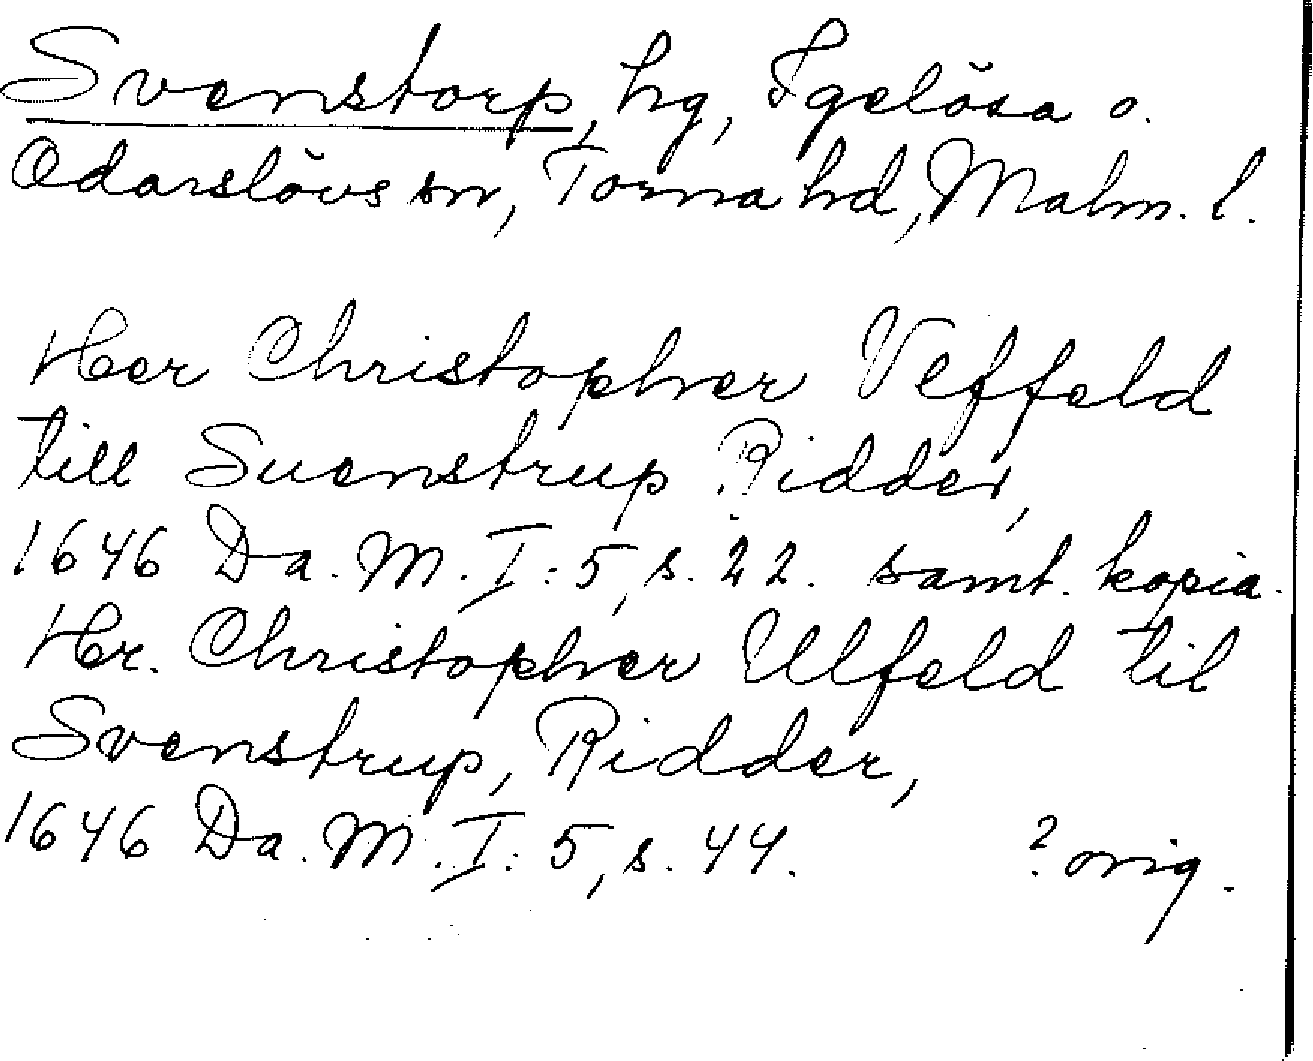 Svenstorp, hg, Igelösa o.
Odarslövs sn, Torna hd, Malm. l.
Her Christopher Veffeld
till Suenstrup Ridder,
1646 Da. M. I: 5, s. 22. samt. kopia.
Hr. Christopher Ulfeld til
Svenstrup, Ridder,
1646 Da. M. I: 5, s. 44. ? orig.